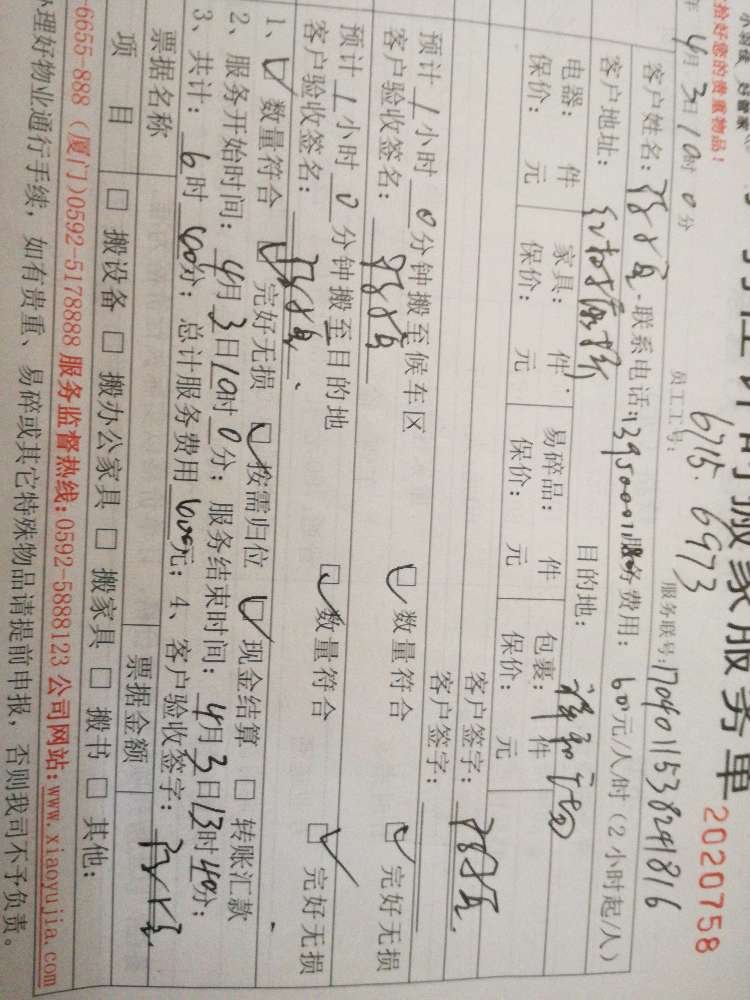 拾好您的贵重物品！
时搬家服务单 2020758
员工工号：6715. 6973 服务联号：1704011538241816
4月3日10时0分
客户姓名： 联系电话： 服务费用：60元/人/时（2小时起/人）
客户地址： 目的地：
电器： 件 家具： 件 易碎品： 件 包裹： 件
保价： 元 保价： 元 保价： 元 保价： 元
客户签字：
客户签字：
预计1小时0分钟搬至候车区 数量符合 完好无损
客户验收签名：
预计1小时0分钟搬至目的地 数量符合 完好无损
客户验收签名：
1、数量符合 完好无损 按需归位 现金结算 转账汇款
2、服务开始时间：4月3日10时0分；服务结束时间：4月3日13时40分；
3、共计：6时40分；总计服务费用600元；4、客户验收签字：
票据名称 票据金额
项目 搬设备 搬办公家具 搬家具 搬书 其他：
-6655-888（厦门）0592-5178888 服务监督热线：0592-5888123 公司网站：www.xiaoyujia.com
办理好物业通行手续，如有贵重、易碎或其它特殊物品请提前申报，否则我司不予负责。